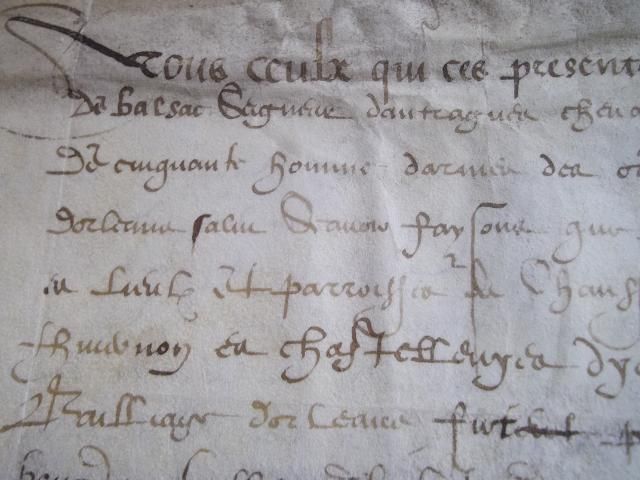 Tous ceulx qui ces present
De balsac Seigneur dantragues cheva
De cinquante homme darmes des or
dorleans salut Scavoir faysons que
es lieux Et parroisses de Chauss
es chastellenyes dye
Bailliage dorleans furent